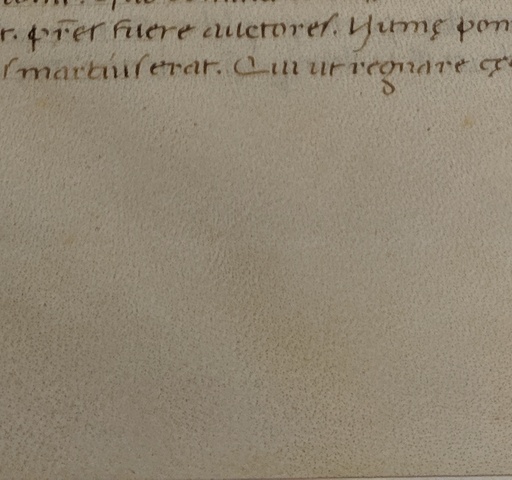 r. pr̄es fuere auctores. Numę pon
s martius erat. Qui ut regnare cę